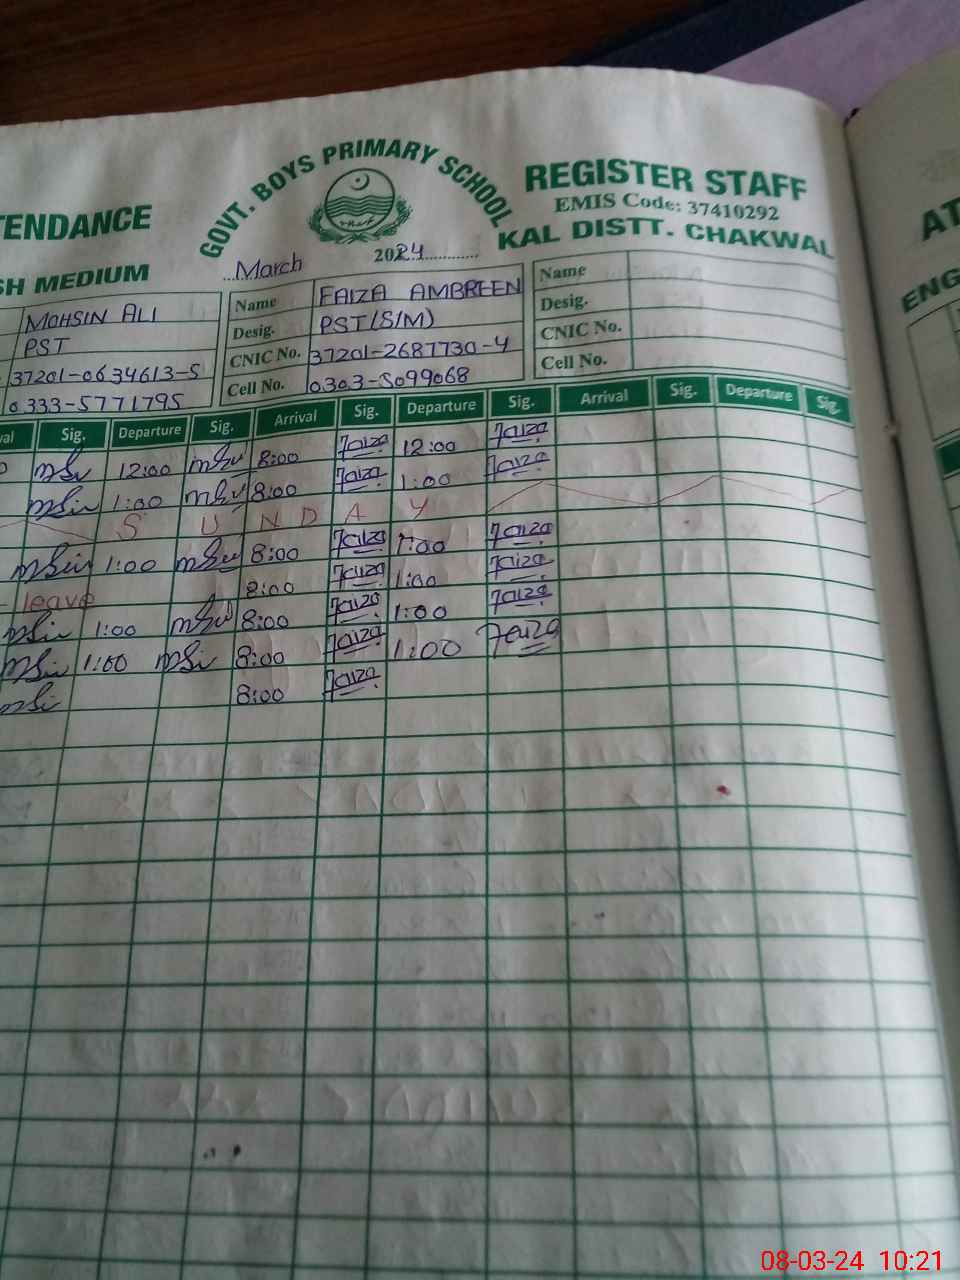 GOVT. BOYS PRIMARY SCHOOL
REGISTER STAFF
EMIS Code: 37410292
KAL DISTT. CHAKWAL
TENDANCE
SH MEDIUM
March 2024
MOHSIN ALI
PST
37201-0634613-5
0333-5771795
Name FAIZA AMBREEN
Desig. PST(S/M)
CNIC No. 37201-2687730-4
Cell No. 0303-5099068
Name
Desig.
CNIC No.
Cell No.
val Sig. Departure Sig. Arrival Sig. Departure Sig. Arrival Sig. Departure Sig.
12:00 8:00 Faiza 12:00 Faiza
1:00 8:00 Faiza 1:00 Faiza
S U N D A Y
1:00 8:00 Faiza 1:00 Faiza
leave 8:00 Faiza 1:00 Faiza
1:00 8:00 Faiza 1:00 Faiza
1:00 8:00 Faiza 1:00 Faiza
8:00 Faiza
AT
ENG
08-03-24 10:21